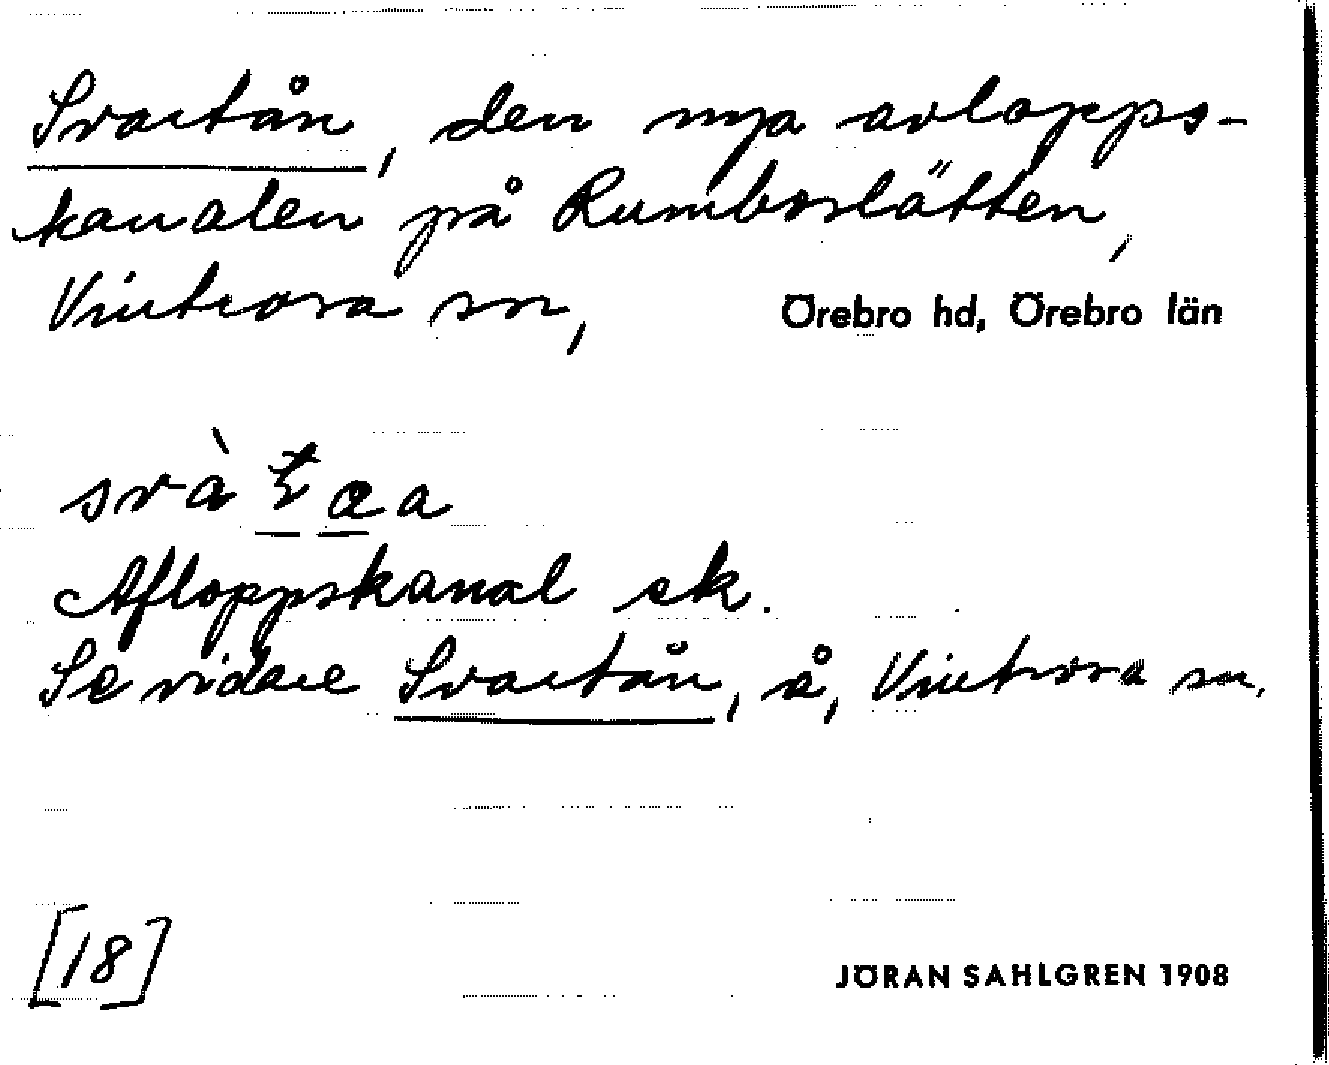 Svartån, den nya avlopps-
kanalen på Rumboslätten,
Vintrosa sn, Örebro hd, Örebro län
Afloppskanal ek.
Se vidare Svartån, å, Vintrosa sn.
[18] JÖRAN SAHLGREN 1908